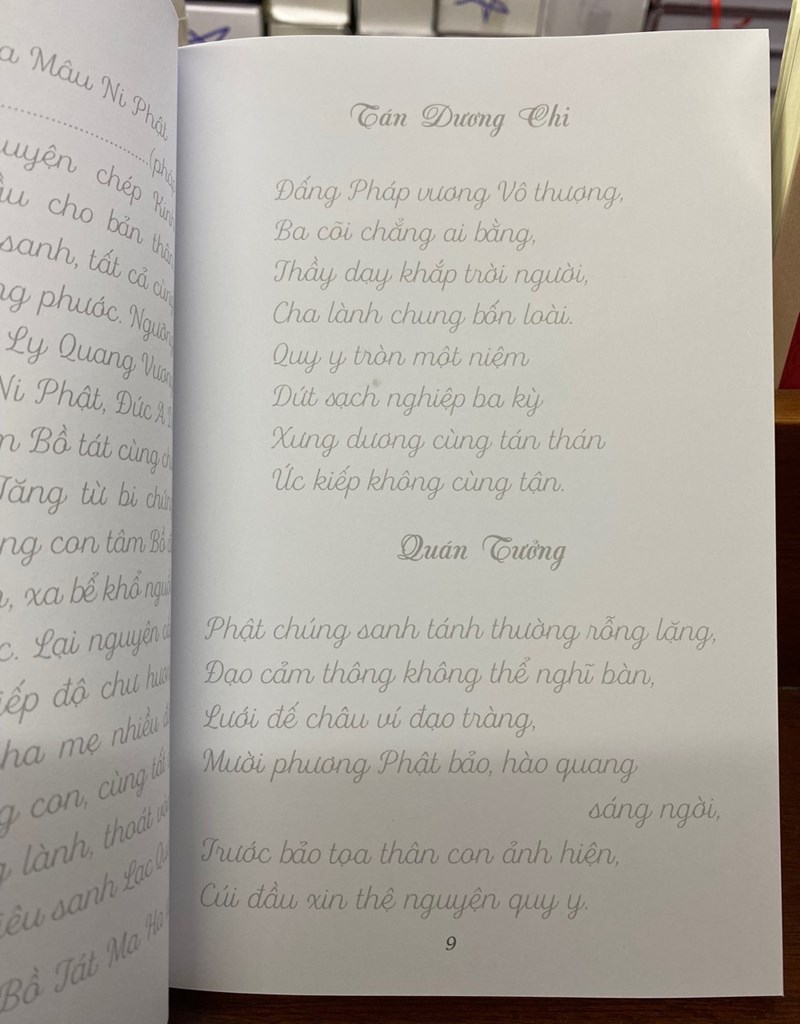 a Mâu Ni Phật
uyện chép Kinh
cho bản thân
sanh, tất cả cùng
phước. Nguồn
Ly Quang Vương
Ni Phật, Đức A
Bồ tát cùng
Tăng từ bi
con tâm Bồ
xa bể khổ
Lại nguyện
độ chư
mẹ nhiều
con, cùng tất
lành, thoát
sanh Lạc
Bồ Tát Ma Ha
Tán Dương Chi
Đấng Pháp vương Vô thượng,
Ba cõi chẳng ai bằng,
Thầy dạy khắp trời người,
Cha lành chung bốn loài.
Quy y tròn một niệm
Dứt sạch nghiệp ba kỳ
Xưng dương cùng tán thán
Ức kiếp không cùng tận.
Quán Tưởng
Phật chúng sanh tánh thường rỗng lặng,
Đạo cảm thông không thể nghĩ bàn,
Lưới đế châu ví đạo tràng,
Mười phương Phật bảo, hào quang
sáng ngời,
Trước bảo tọa thân con ảnh hiện,
Cúi đầu xin thệ nguyện quy y.
9